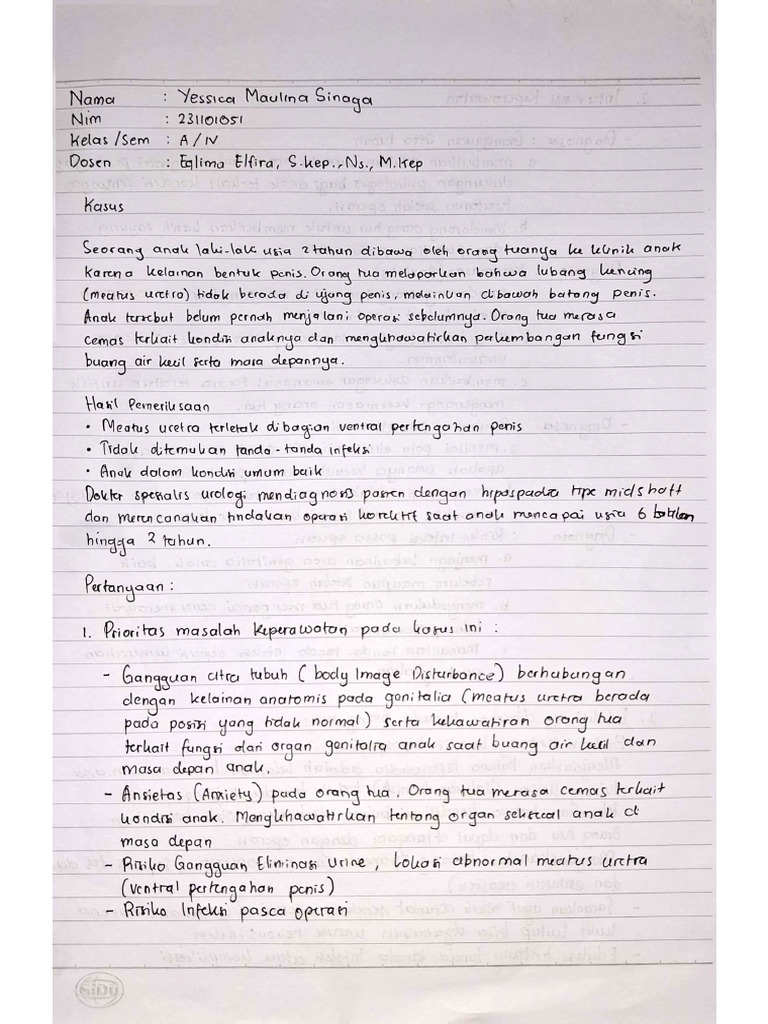 Nama : Yessica Maulina Sinaga
Nim : 231101051
Kelas /Sem : A / IV
Dosen : Eqlima Elfira, S.kep., Ns., M.kep
Kasus
Seorang anak laki-laki usia 2 tahun dibawa oleh orang tuanya ke klinik anak
karena kelainan bentuk penis. Orang tua melaporkan bahwa lubang kencing
(meatus uretra) tidak berada di ujang penis, melainkan dibawah batang penis.
Anak tersebut belum pernah menjalani operasi sebelumnya. Orang tua merasa
cemas terkait kondisi anaknya dan mengkhawatirkan perkembangan fungsi
buang air kecil serta masa depannya.
Hasil Pemeriksaan
• Meatus uretra terletak dibagian ventral pertengahan penis
• Tidak ditemukan tanda-tanda infeksi
• Anak dalam kondisi umum baik
Dokter spesialis urologi mendiagnosis pasien dengan hipospadia tipe midshaft
dan merencanakan tindakan operasi korektif saat anak mencapai usia 6 bulan
hingga 2 tahun.
Pertanyaan :
1. Prioritas masalah keperawatan pada kasus ini :
- Gangguan citra tubuh ( body Image Disturbance) berhubungan
dengan kelainan anatomis pada genitalia (meatus uretra berada
pada posisi yang tidak normal) serta kekhawatiran orang tua
terkait fungsi dari organ genitalia anak saat buang air kecil dan
masa depan anak.
- Ansietas (Anxiety) pada orang tua. Orang tua merasa cemas terkait
kondisi anak. Mengkhawatirkan tentang organ seksual anak di
masa depan
- Risiko Gangguan Eliminasi Urine, Lokasi abnormal meatus uretra
(ventral pertengahan penis)
- Risiko Infeksi pasca operasi
SiDU